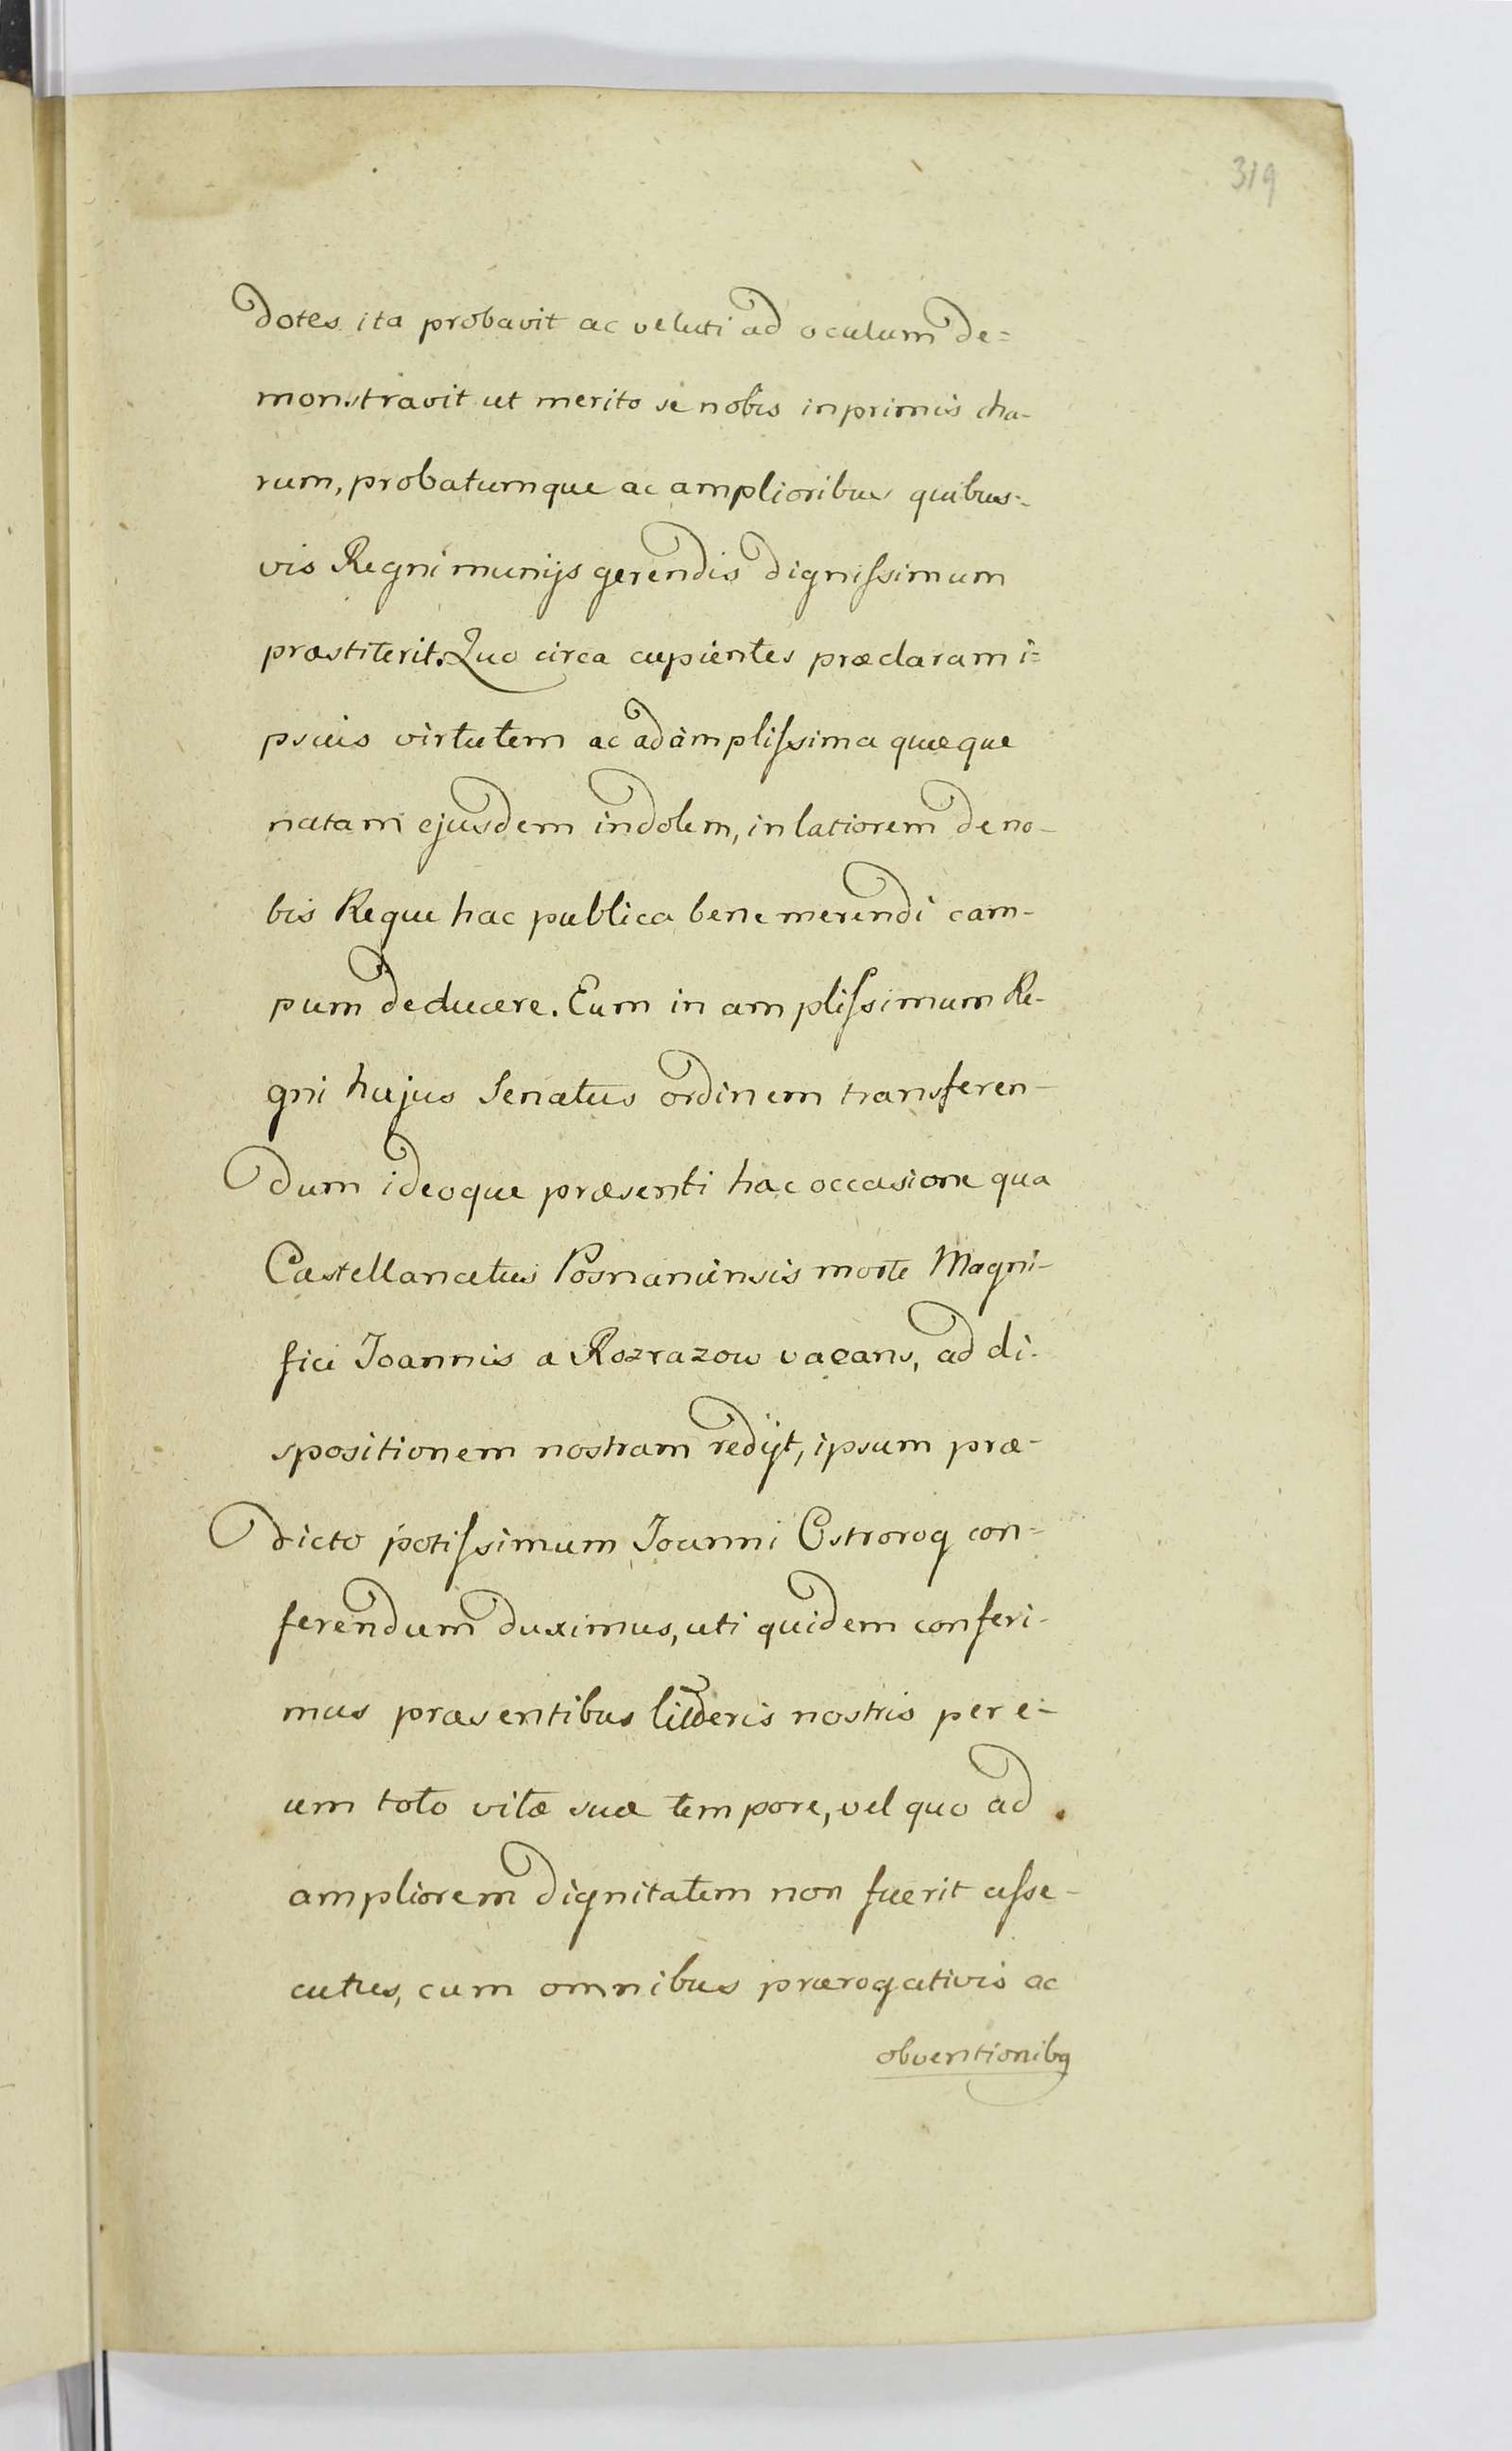 319
dotes ita probavit ac veluti ad oculum de=
monstravit ut merito se nobis inprimis cha-
rum, probatumque ac amplioribus quibus-
vis Regni munijs gerendis dignissimum
præstiterit. Quo circa cupientes præclaram i=
psius virtutem ac ad amplissima quæque
natam ejusdem indolem, in latiorem de no-
bis Reque hac publica bene merendi cam-
pum deducere. Eum in amplissimum Re-
gni hujus Senatus ordinem transferen-
dum ideoque præsenti hac occasione qua
Castellanatus Posnaniensis morte Magni-
fici Joannis a Rozrazow vacans, ad di-
spositionem nostram redijt, ipsum præ-
dicto potissimum Joanni Ostrorog con=
ferendum duximus, uti quidem conferi-
mus præsentibus litteris nostris per e-
um toto vitæ suæ tempore, vel quo ad
ampliorem dignitatem non fuerit asse-
cutus, cum omnibus prærogativis ac
obventionibq